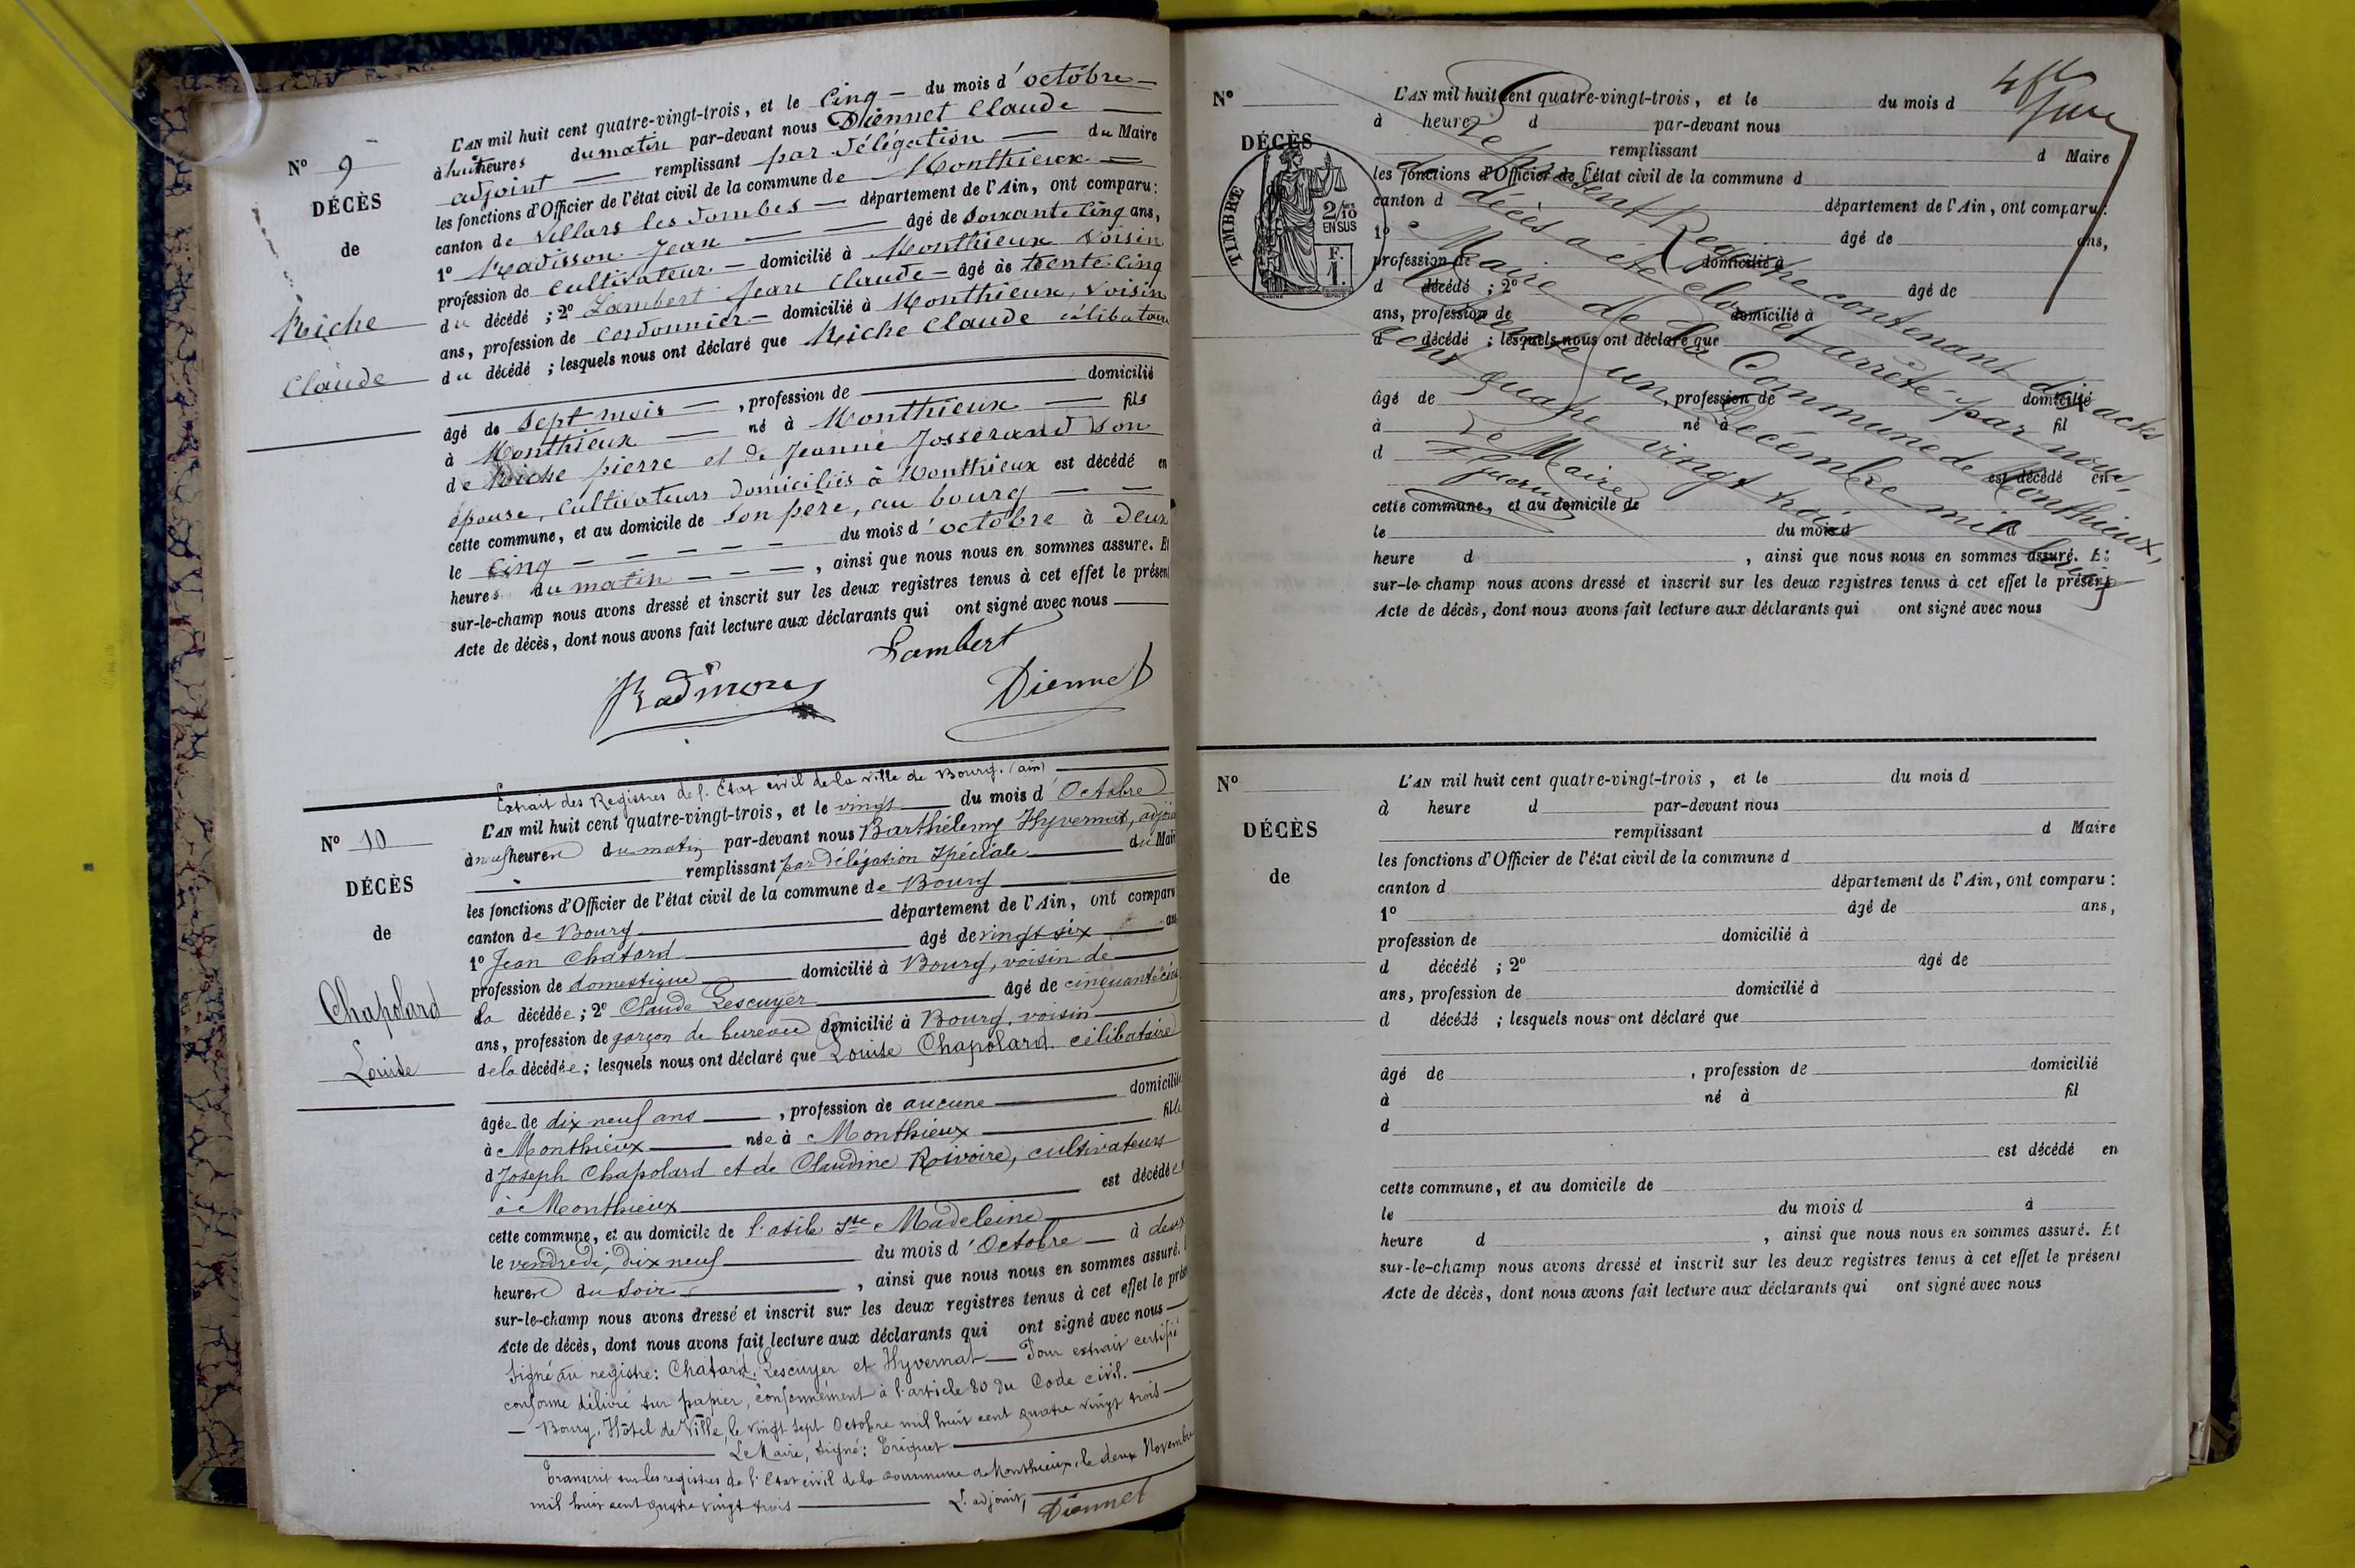 N° 9
DÉCÈS
de
Riche
Claude
L'AN mil huit cent quatre-vingt-trois, et le Cinq du mois d'octobre
à huit heures du matin par-devant nous Diennet Claude
adjoint remplissant par délégation du Maire
les fonctions d'Officier de l'état civil de la commune de Monthieux
canton de Villars les Dombes département de l'Ain, ont comparu :
1° Radisson Jean âgé de Soixante Cinq ans,
profession de Cultivateur domicilié à Monthieux Voisin
du décédé ; 2° Lambert Jean Claude âgé de trente-cinq
ans, profession de Cordonnier domicilié à Monthieux, Voisin
du décédé ; lesquels nous ont déclaré que Riche Claude célibataire
âgé de Sept mois , profession de domicilié
à Monthieux né à Monthieux fils
de Riche pierre et de Jeanne Josserand Son
épouse, Cultivateurs domiciliés à Monthieux est décédé en
cette commune, et au domicile de Son père, au bourg
le Cinq du mois d'octobre à Deux
heures du matin , ainsi que nous nous en sommes assuré. Et
sur-le-champ nous avons dressé et inscrit sur les deux registres tenus à cet effet le présent
Acte de décès, dont nous avons fait lecture aux déclarants qui ont signé avec nous
Lambert
Diennet
Extrait des Registres de l'Etat civil de la ville de Bourg. (ain)
N° 10
DÉCÈS
de
Chapolard
Louise
L'AN mil huit cent quatre-vingt-trois, et le vingt du mois d'Octobre
à neuf heures du matin par-devant nous Barthélemy Hyvernat, adjoint
remplissant par délégation Spéciale du Maire
les fonctions d'Officier de l'état civil de la commune de Bourg
canton de Bourg département de l'Ain, ont comparu
1° Jean Chatard âgé de vingt six ans
profession de domestique domicilié à Bourg, voisin de
la décédée ; 2° Claude Lescuyer âgé de cinquante cinq
ans, profession de garçon de bureau domicilié à Bourg, voisin
de la décédée ; lesquels nous ont déclaré que Louise Chapolard célibataire
âgée de dix neuf ans , profession de aucune domiciliée
à Monthieux née à Monthieux fille
d Joseph Chapolard et de Claudine Rivoire, cultivateurs
à Monthieux est décédée
cette commune, et au domicile de l'asile Ste Madeleine
le vendredi, dix neuf du mois d'Octobre à deux
heures du soir , ainsi que nous nous en sommes assuré.
sur-le-champ nous avons dressé et inscrit sur les deux registres tenus à cet effet le présent
Acte de décès, dont nous avons fait lecture aux déclarants qui ont signé avec nous
Signé au registre : Chatard, Lescuyer et Hyvernat Pour extrait certifié
conforme délivré sur papier, conformément à l'article 80 du Code civil.
Bourg, Hôtel de Ville, le vingt sept Octobre mil huit cent quatre vingt trois
Le Maire, signé :
Transcrit sur les registres de l'Etat civil de la commune de Monthieux, le deux Novembre
mil huit cent quatre vingt trois L'adjoint, Diennet
N°
DÉCÈS
TIMBRE
2/10
EN SUS
F.
1.
L'AN mil huit cent quatre-vingt-trois, et le du mois d
à heure d par-devant nous
remplissant d Maire
les fonctions d'Officier de l'état civil de la commune d
canton d département de l'Ain, ont comparu :
1° âgé de ans,
profession de domicilié à
d décédé ; 2° âgé de
ans, profession de domicilié à
d décédé ; lesquels nous ont déclaré que
âgé de , profession de domicilié
à né à fil
d
est décédé en
cette commune, et au domicile de
le du mois d à
heure d , ainsi que nous nous en sommes assuré. Et
sur-le-champ nous avons dressé et inscrit sur les deux registres tenus à cet effet le présent
Acte de décès, dont nous avons fait lecture aux déclarants qui ont signé avec nous
Le présent Registre contenant dix actes
de décès a été clos et arrêté par nous,
Maire de la Commune de Monthieux,
le trente un Décembre mil huit
cent quatre vingt trois
Le Maire
N°
DÉCÈS
de
L'AN mil huit cent quatre-vingt-trois, et le du mois d
à heure d par-devant nous
remplissant d Maire
les fonctions d'Officier de l'état civil de la commune d
canton d département de l'Ain, ont comparu :
1° âgé de ans,
profession de domicilié à
d décédé ; 2° âgé de
ans, profession de domicilié à
d décédé ; lesquels nous ont déclaré que
âgé de , profession de domicilié
à né à fil
d
est décédé en
cette commune, et au domicile de
le du mois d à
heure d , ainsi que nous nous en sommes assuré. Et
sur-le-champ nous avons dressé et inscrit sur les deux registres tenus à cet effet le présent
Acte de décès, dont nous avons fait lecture aux déclarants qui ont signé avec nous